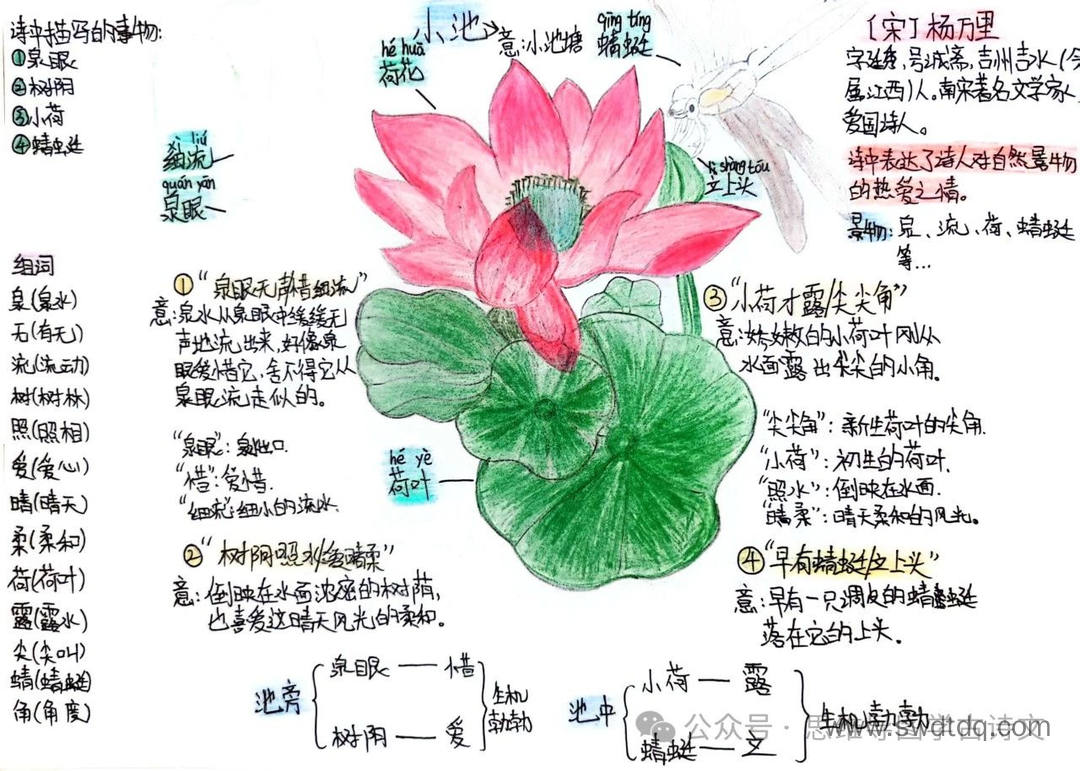 小池
意:小池塘
hé huā
荷花
qīng tíng
蜻蜓
lì shàng tóu
立上头
诗中描写的事物:
①泉眼
②树阴
③小荷
④蜻蜓
xì liú
细流
quán yǎn
泉眼
[宋]杨万里
字廷秀,号诚斋,吉州吉水(今
属江西)人。南宋著名文学家,
爱国诗人。
诗中表达了诗人对自然景物
的热爱之情。
景物:泉、流、荷、蜻蜓
等...
组词
泉(泉水)
无(有无)
流(流动)
树(树林)
照(照相)
爱(爱心)
晴(晴天)
柔(柔和)
荷(荷叶)
露(露水)
尖(尖叫)
蜻(蜻蜓)
角(角度)
①“泉眼无声惜细流”
意:泉水从泉眼中缓缓无
声地流出来,好像泉
眼爱惜它,舍不得它从
泉眼流走似的。
“泉眼”:泉出口.
“惜”:爱惜.
“细流”:细小的流水.
②“树阴照水爱晴柔”
意:倒映在水面浓密的树荫,
也喜爱这晴天风光的柔和。
hé yè
荷叶
③“小荷才露尖尖角”
意:娇嫩的小荷叶刚从
水面露出尖尖的小角。
“尖尖角”:新生荷叶的尖角.
“小荷”:初生的荷叶.
“照水”:倒映在水面.
“晴柔”:晴天柔和的风光。
④“早有蜻蜓立上头”
意:早有一只调皮的蜻蜓
落在它的上头。
池旁
泉眼——惜
树阴——爱
生机
勃勃
池中
小荷—露
蜻蜓—立
生机勃勃
公众号·思维导图学古诗文
www.swdtdq.com